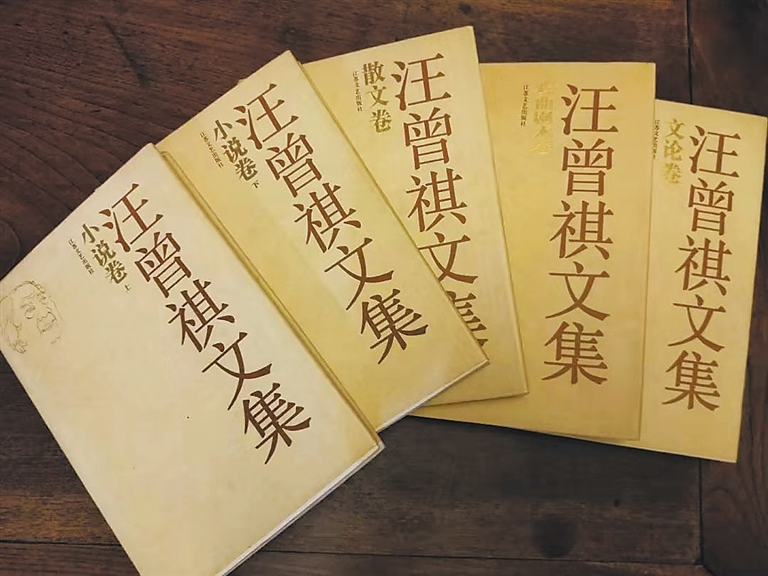 汪曾祺文集
小说卷 上
江苏文艺出版社
汪曾祺文集
小说卷 下
江苏文艺出版社
汪曾祺文集
散文卷
江苏文艺出版社
汪曾祺文集
戏曲剧本卷
江苏文艺出版社
汪曾祺文集
文论卷
江苏文艺出版社